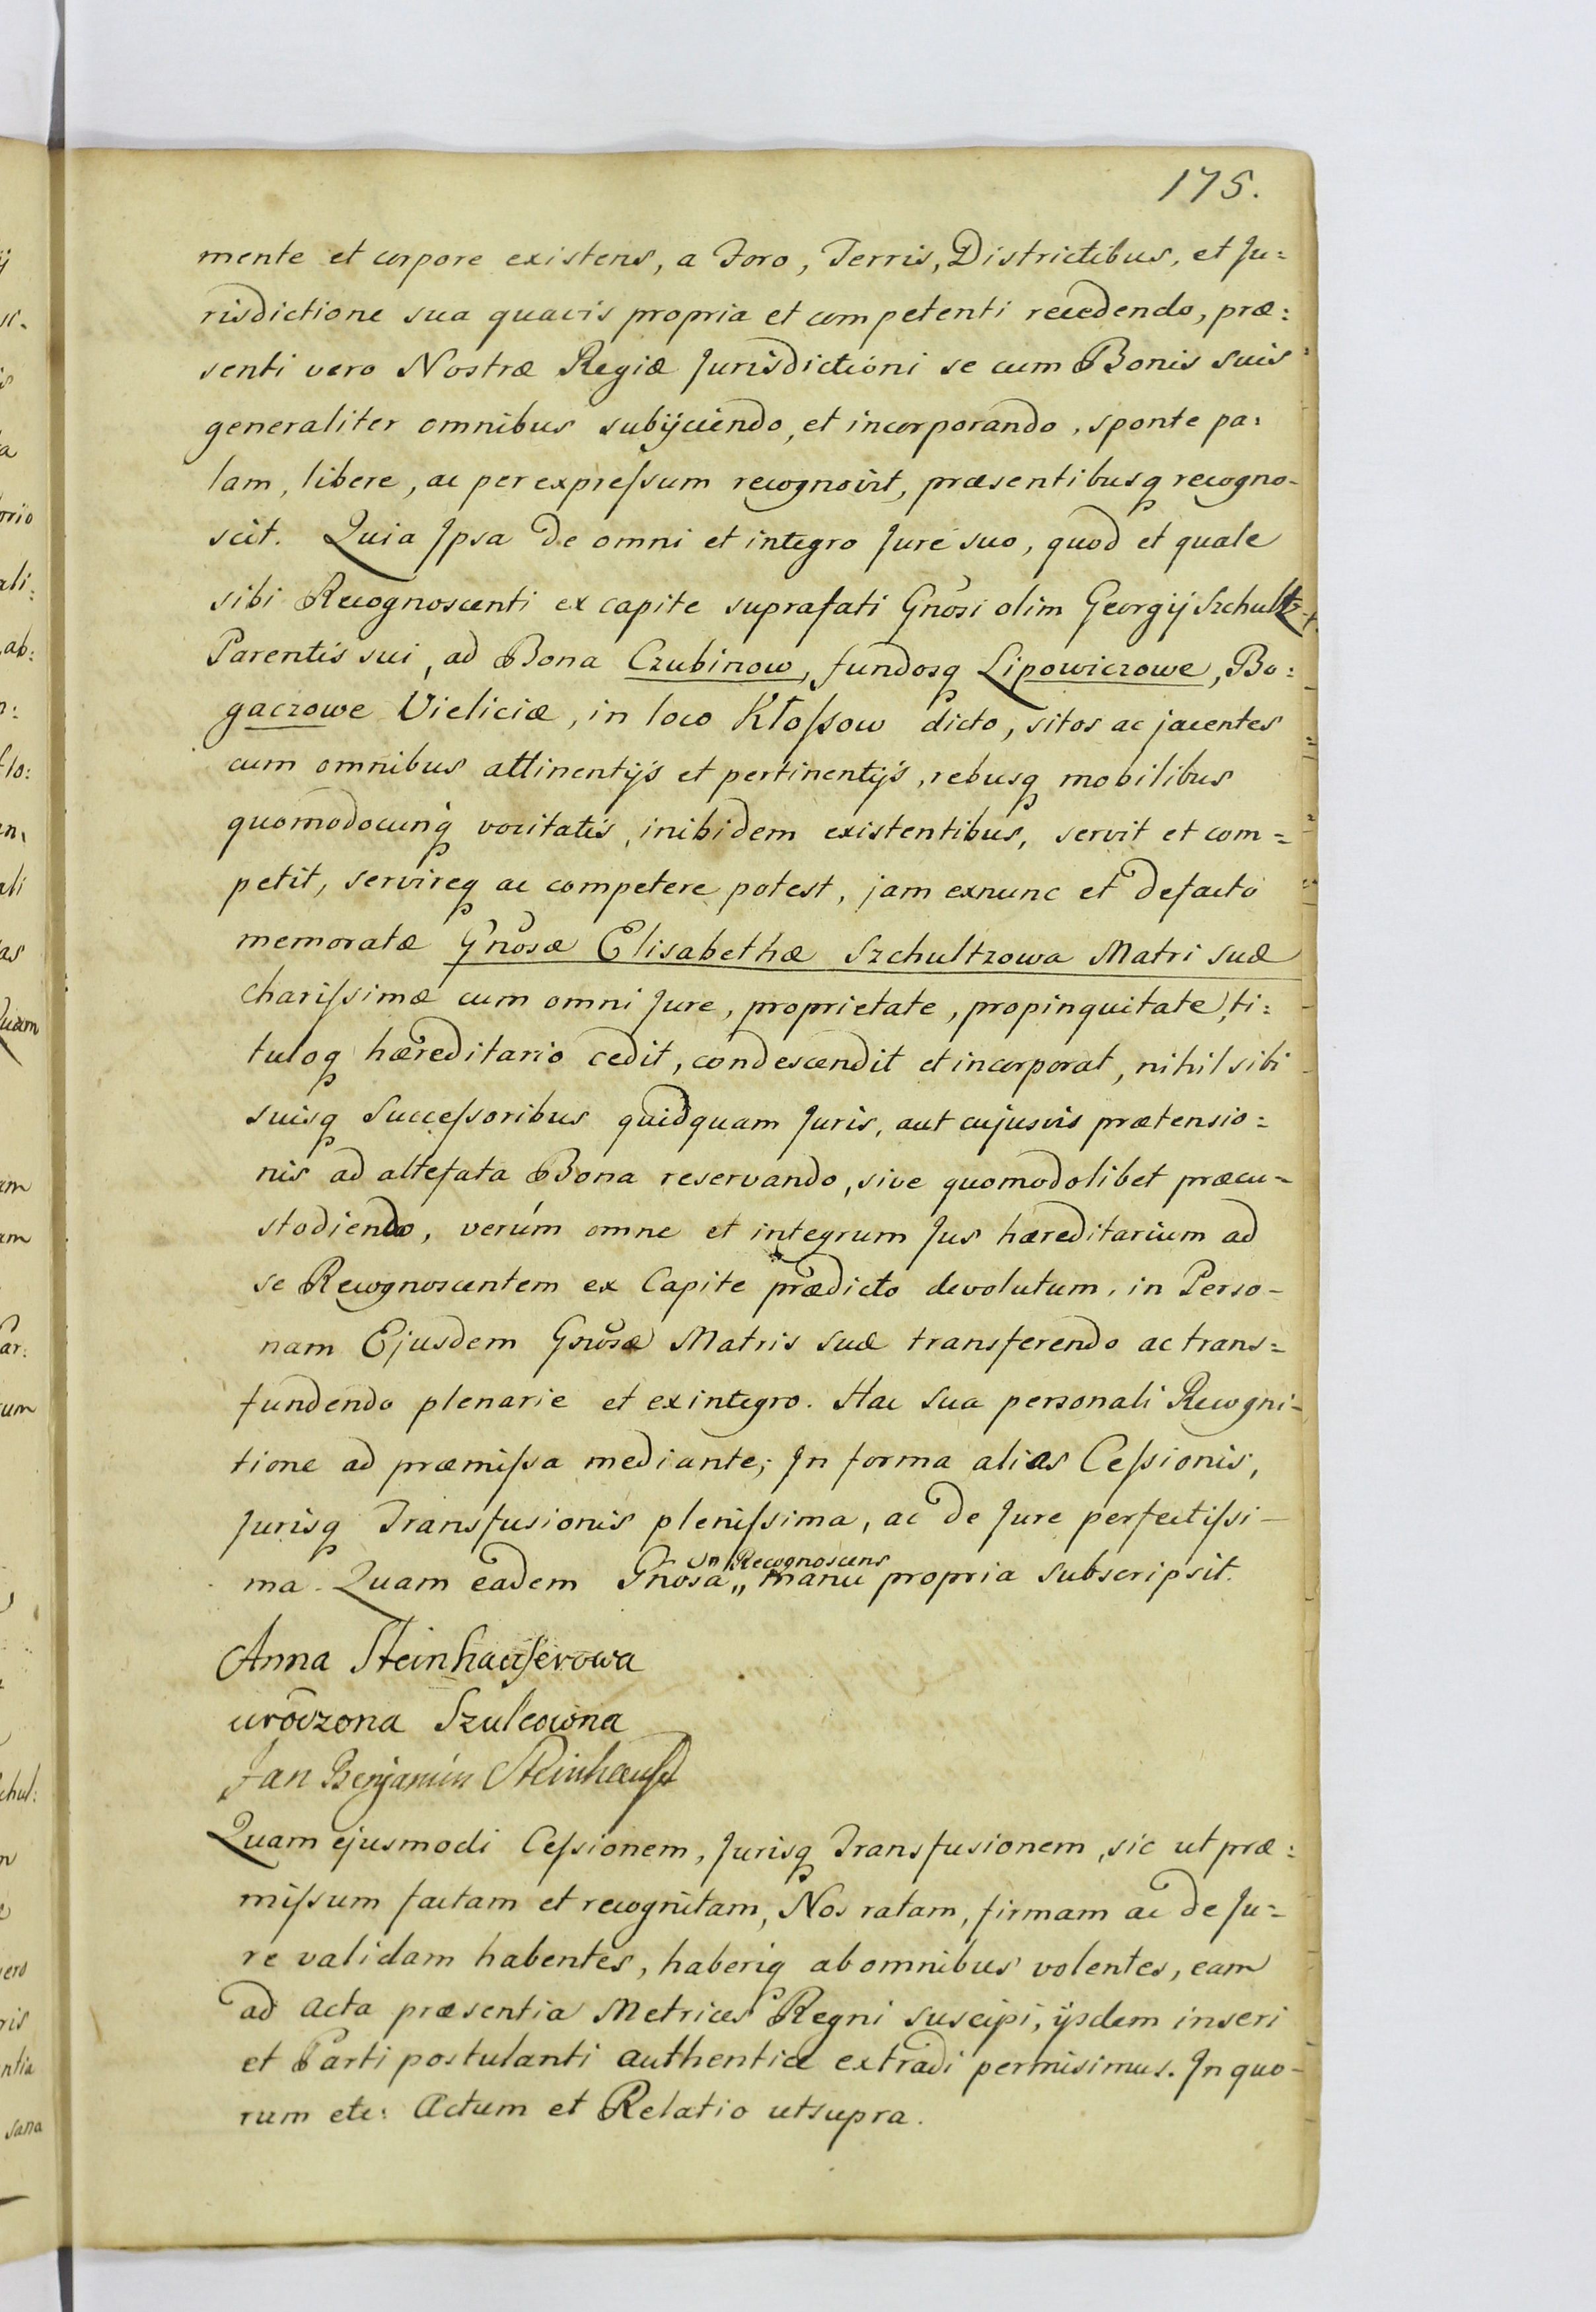 175.
mente et corpore existens, a Foro, Terris, Districtibus, et Ju:
risdictione sua quavis propria et competenti recedendo, præ:
senti vero Nostræ Regiæ Jurisdictioni se cum Bonis suis
generaliter omnibus subijciendo, et incorporando, sponte pa:
lam, libere, ac per expreſsum recognovit, præsentibusq recogno-
scit. Quia Ipsa de omni et integro Jure suo, quod et quale
sibi Recognoscenti ex capite suprafati Gnosi olim Georgij Szchultz
Parentis sui, ad Bona Czubinow, fundosq Lipowiczowe, Bo:
gaczowe Vieliciæ, in loco Kłoſsow dicto, sitos ac jacentes
cum omnibus attinentijs et pertinentijs, rebusq mobilibus
quomodocunq vocitatis, inibidem existentibus, servit et com=
petit, servireq ac competere potest, jam exnunc et defacto
memoratæ Gnosæ Elisabethæ Szchultzowa Matri suæ
chariſsimæ cum omni Jure, proprietate, propinquitate, ti:
tuloq hæreditario cedit, condescendit et incorporat, nihil sibi
suisq Succeſsoribus quidquam Juris, aut cujusvis prætensio=
nis ad altefata Bona reservando, sive quomodolibet præcu=
stodiendo, verúm omne et integrum Jus hæreditarium ad
se Recognoscentem ex Capite prædicto devolutum, in Perso-
nam Ejusdem Gnosæ Matris suæ transferendo ac trans=
fundendo plenarie et exintegro. Hac sua personali Recogni-
tione ad præmiſsa mediante; In forma alias Ceſsionis,
Jurisq Transfusionis pleniſsima, ac de Jure perfectiſsi-
ma. Quam eadem Gnosa „ Recognoscens manu propria subscripsit.
Anna Steinhauſerowa
urodzona Szulcowna
Jan Benjamin Steinhauſer
Quam ejusmodi Ceſsionem, Jurisq Transfusionem, sic ut præ:
miſsum factam et recognitam, Nos ratam, firmam ac de Ju=
re validam habentes, haberiq ab omnibus volentes, eam
ad Acta præsentia Metrices Regni suscipi, ijsdem inseri
et Parti postulanti authenticæ extradi permisimus. In quo-
rum etc: Actum et Relatio utsupra.